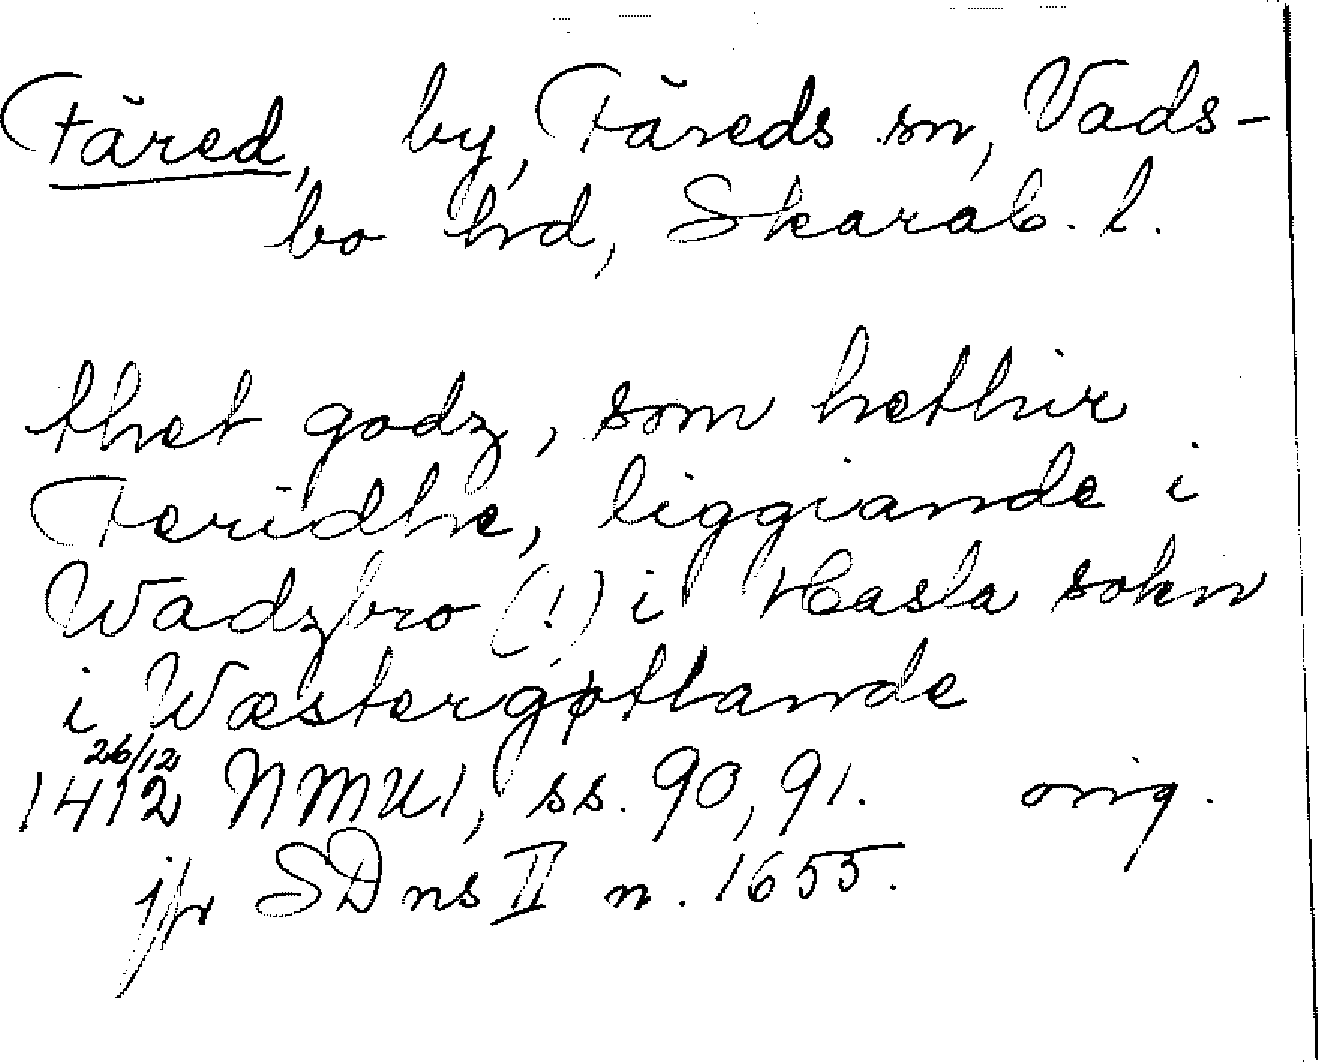 Färed, by, Färeds sn, Vads-
bo hd, Skarab. l.
thet godz, som hethir
Feridhe, liggiande i
Wadzbro (!) i Hasla sokn
i Wæstergøtlande
26/12
1412 NMU1, ss. 90, 91. orig.
jfr SD ns II n. 1655.